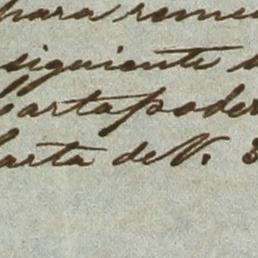 para remi
siguiente
carta poder
carta de N. 3